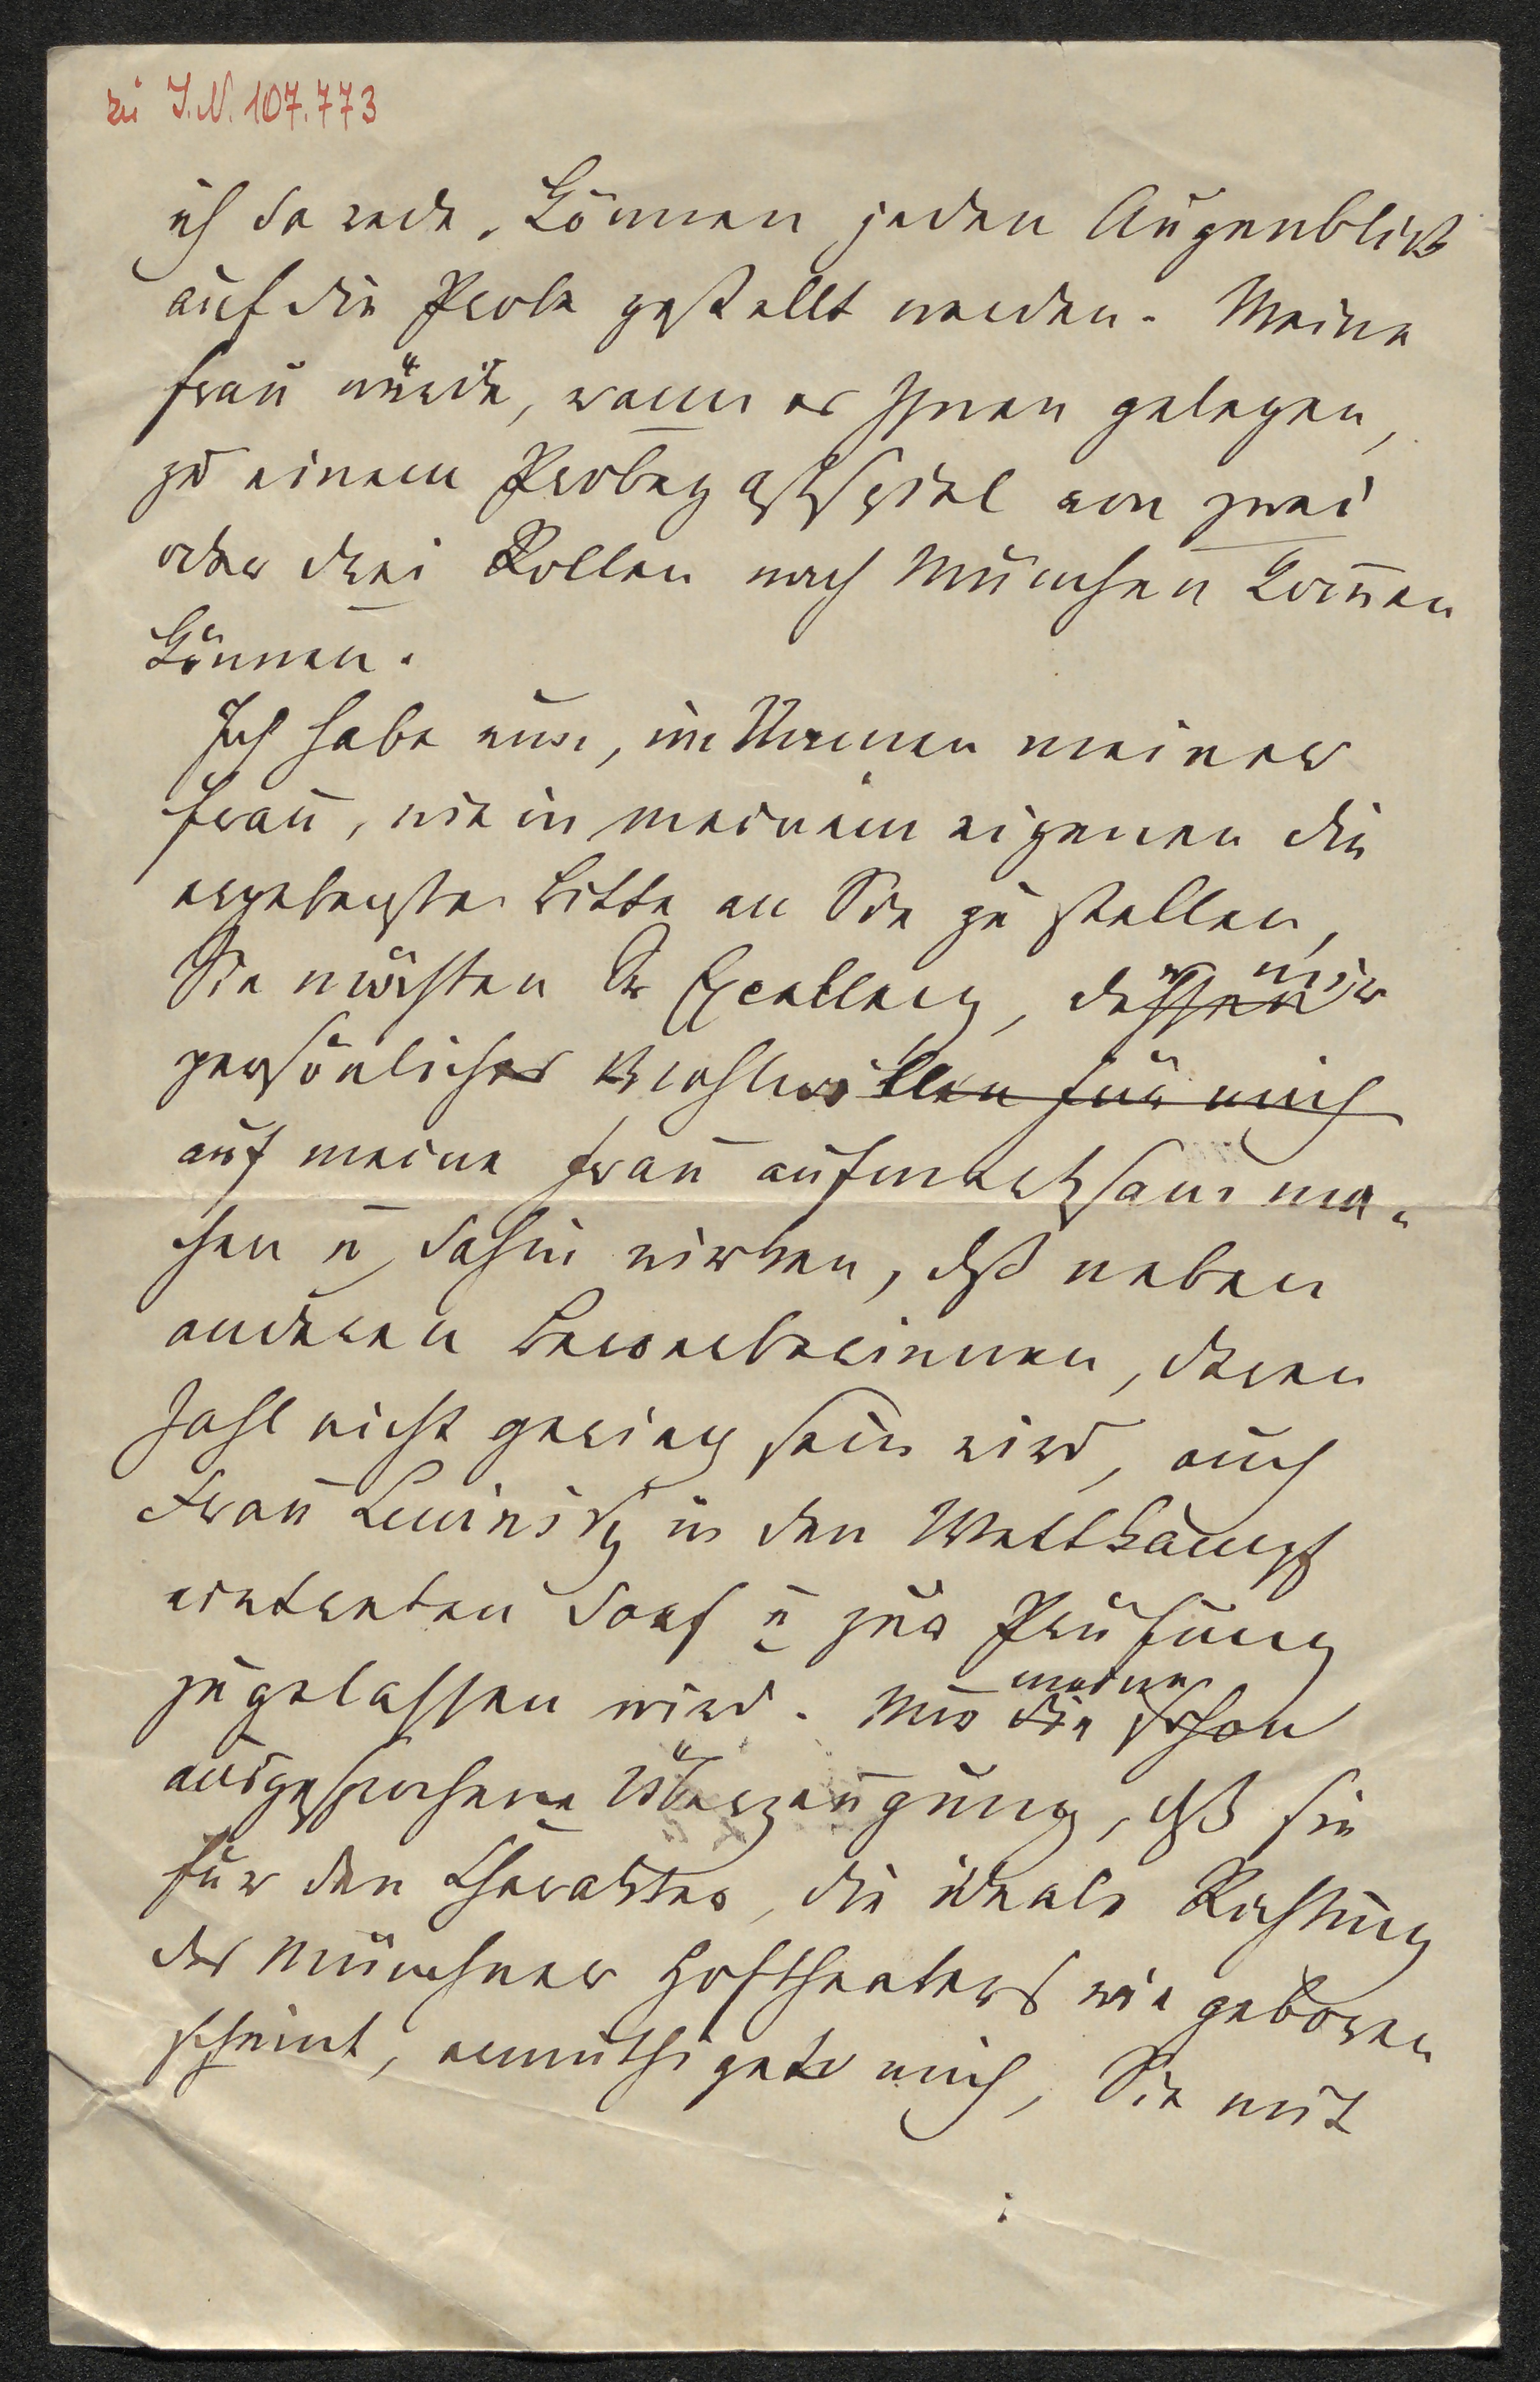 zu I.N. 107.773
ich da rede, können jeden Augenblick
auf die Probe gestellt werden. Meine
Frau würde, wann es Ihnen gelegen,
zu einem Probegastspiel von zwei
oder drei Rollen nach München kom̅en
können.
Ich habe nun, im Namen meiner
Frau, wie in meinem eigenen die
ergebenste Bitte an Sie zu stellen,
Sie möchten Sr Excellenz, dessen mir
persönliches Wohlwollen für mich
auf meine Frau aufmerksam ma-
chen u dahin wirken, daß neben
anderen Bewerberinnen, deren
Zahl nicht gering sein wird, auch
Frau Lewinsky in den Wettkampf
eintreten darf u zur Prüfung
zugelassen wird. Nur die meine schon
ausgesprochene Überzeugung, daß sie
für den Charakter, die ideale Richtung
des Münchner Hoftheaters wie geboren
scheint, ermuthigete mich, Sie mit